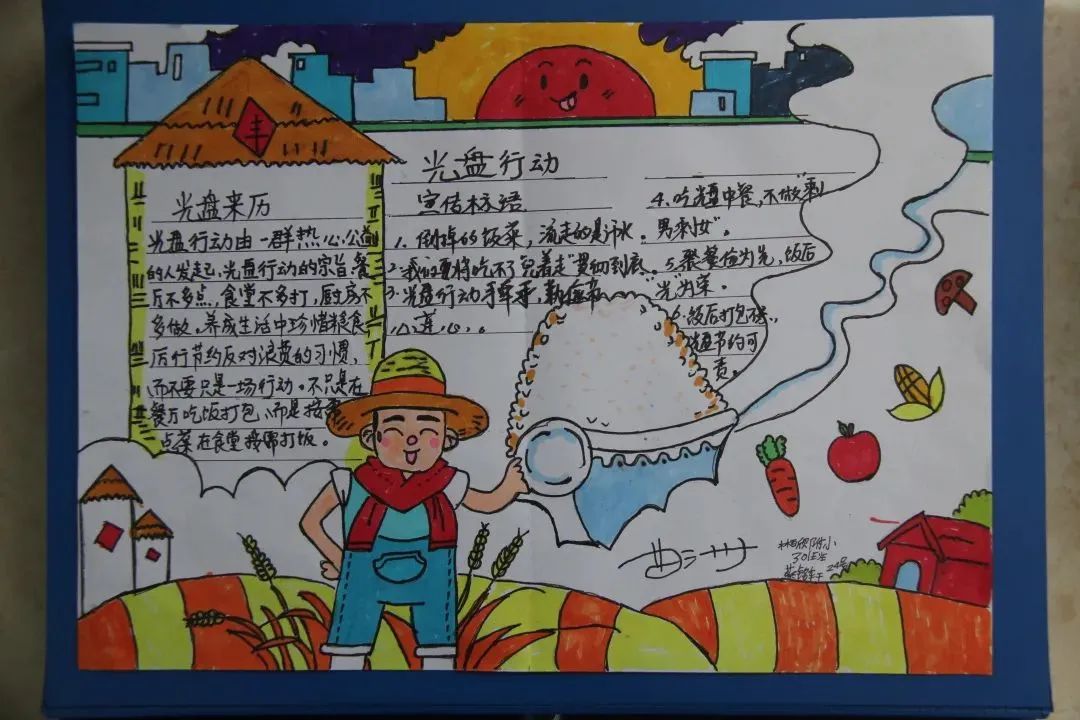 丰
光盘来历
光盘行动由一群热心公道
的人发起,光盘行动的宗旨:餐
厅不多点,食堂不多打,厨房不
多做。养成生活中珍惜粮食、
厉行节约反对浪费的习惯,
而不要只是一场行动。不只是在
餐厅吃饭打包、而是按需
点菜在食堂按需打饭。
光盘行动
宣传标语
1. 倒掉的饭菜,流走的是汗水。
2. 我们要将吃不了兜着走"贯彻到底。
3. 光盘行动手牵手,勤俭节
心连心。
4. 吃光盘中餐,不做"剩
男剩女"。
5. 聚餐俭为先,饭后
"光"为荣。
6. 饭后打包
节约可
责。
附小